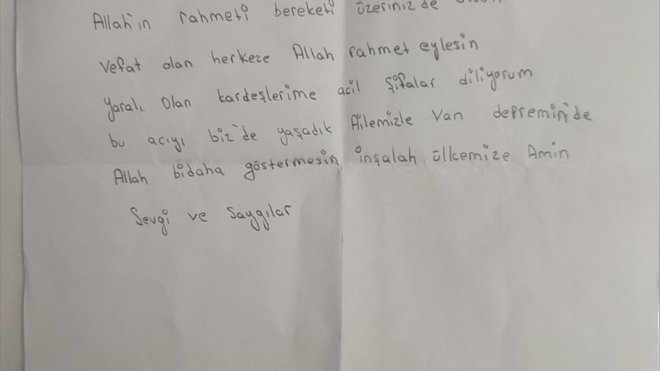 Allah'ın rahmeti bereketi üzeriniz de
Vefat olan herkeze Allah rahmet eylesin
yaralı olan kardeşlerime acil şifalar diliyorum
bu acıyı biz'de yaşadık Ailemizle Van depremin'de
Allah bidaha göstermesin inşalah ülkemize Amin
Sevgi ve Saygılar